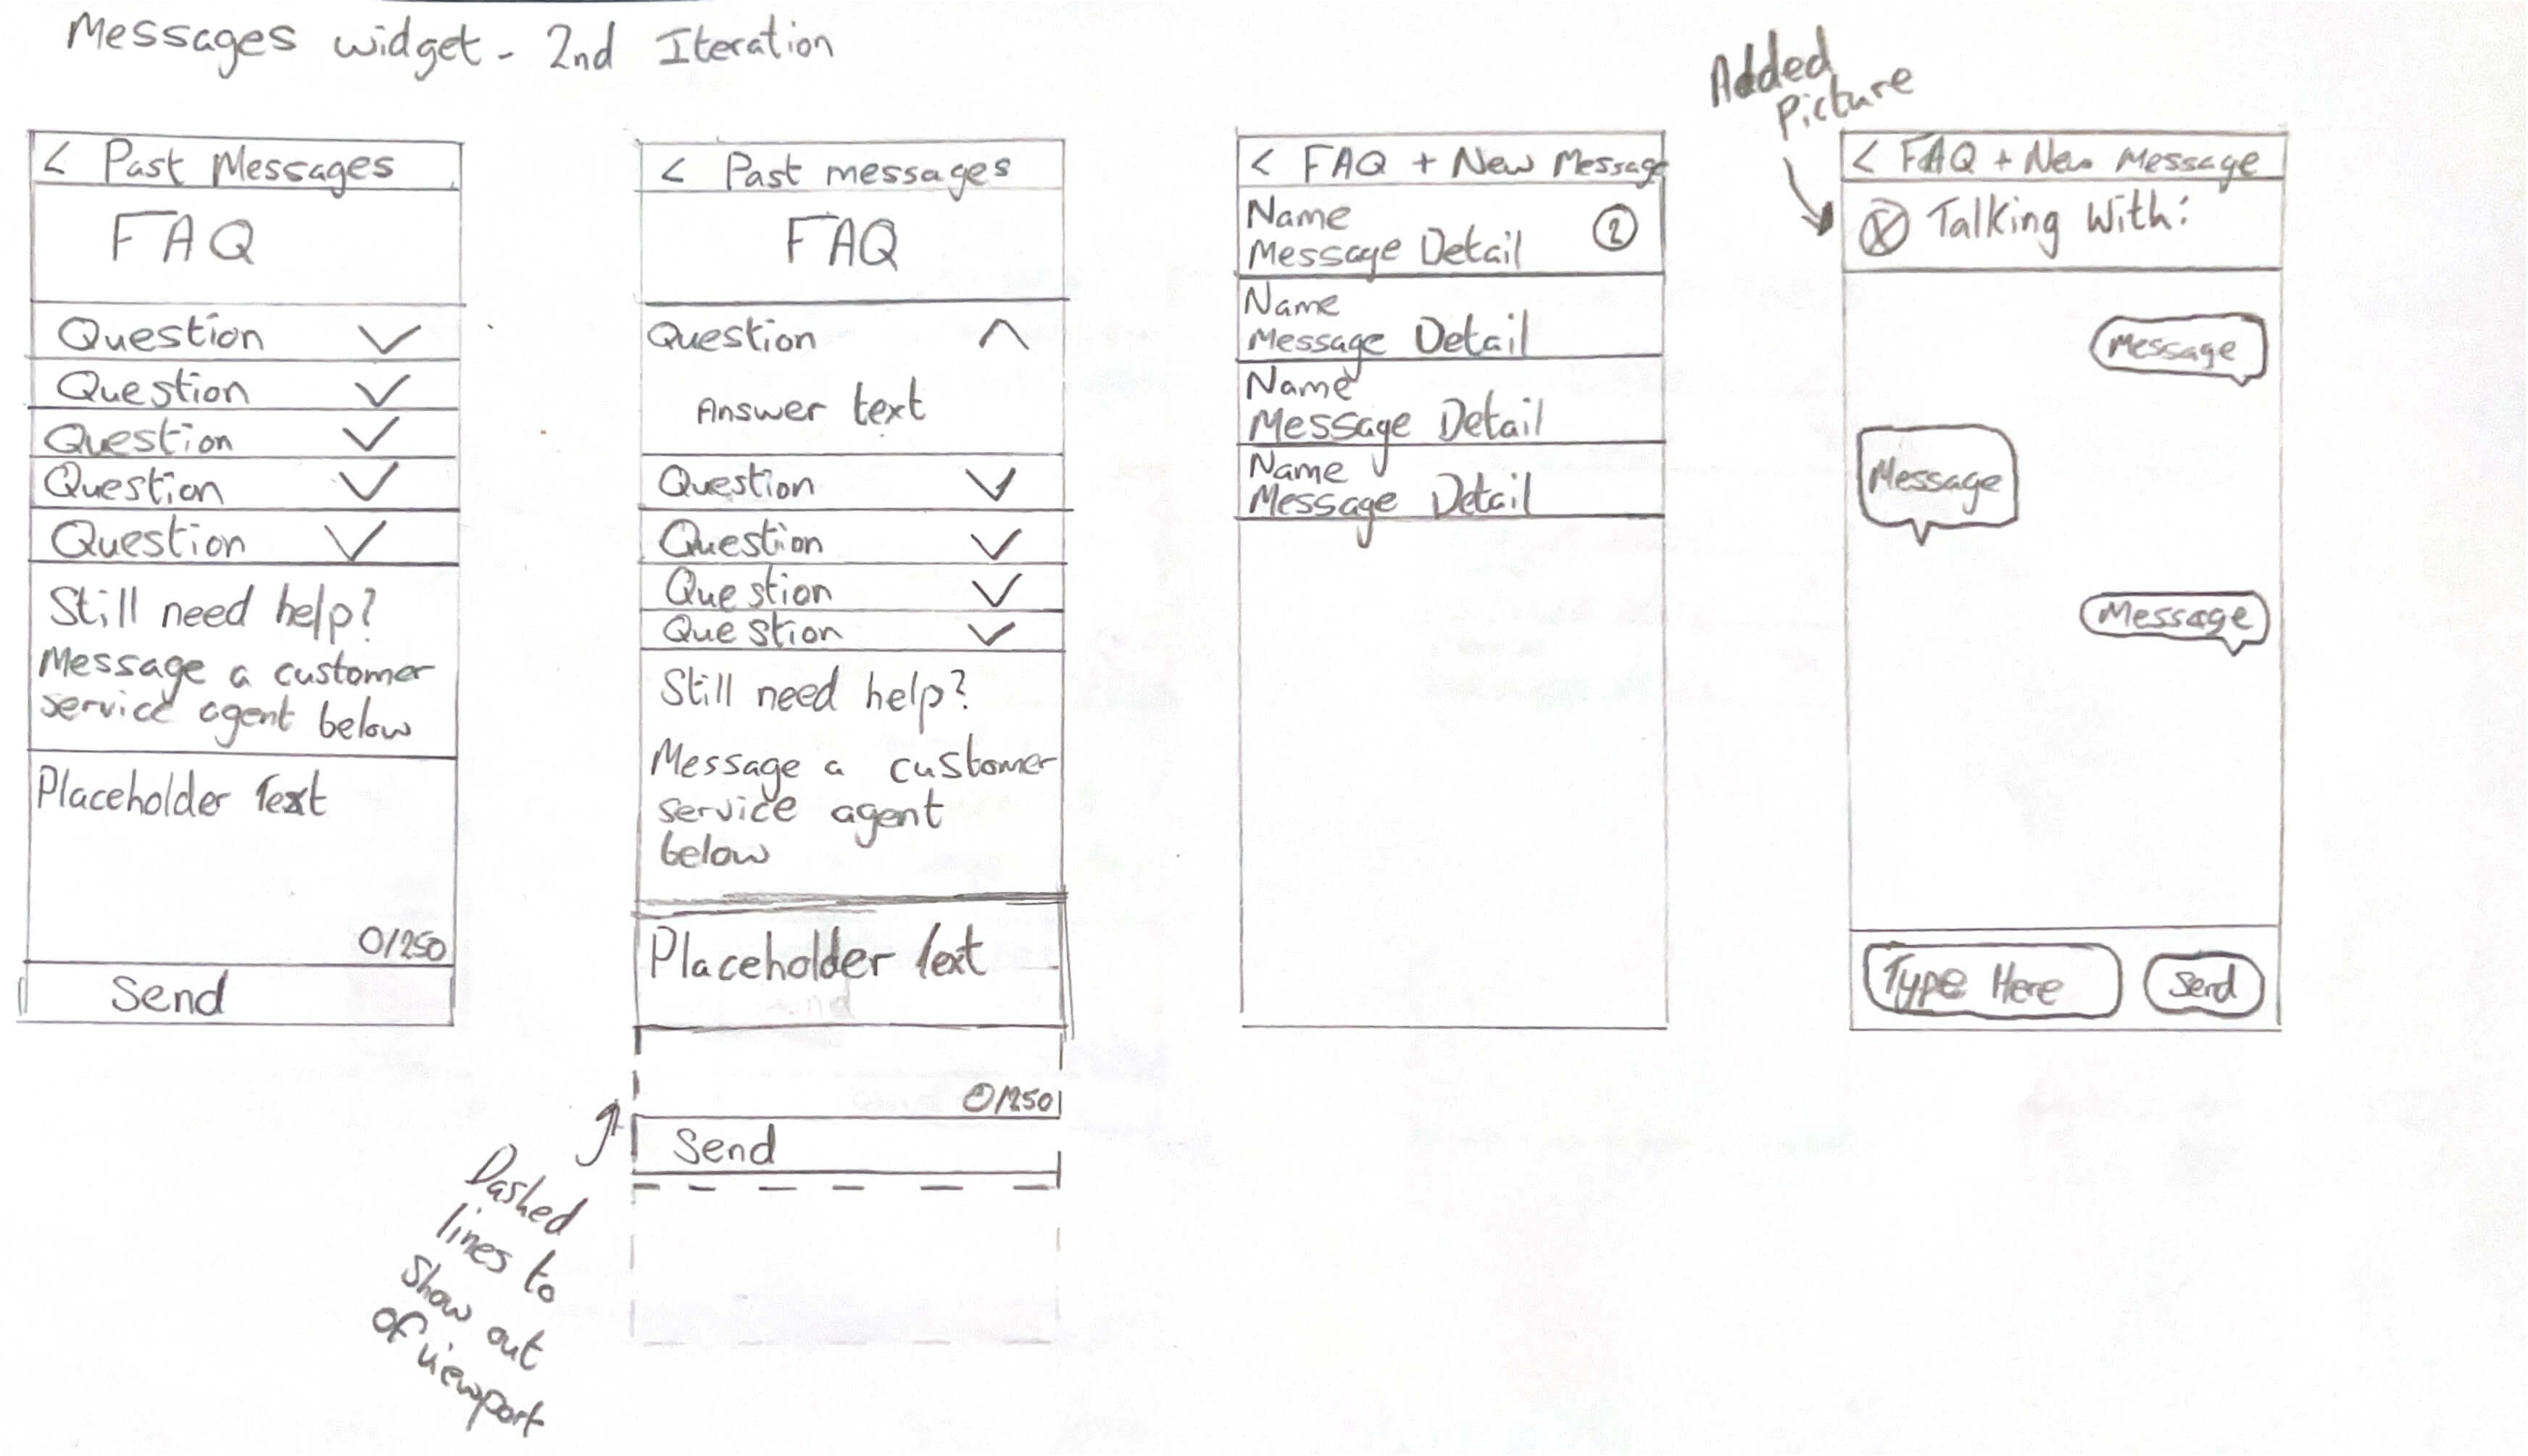 Messages widget - 2nd Iteration
< Past Messages
FAQ
Question
Question
Question
Question
Question
Still need help?
Message a customer
service agent below
Placeholder Text
0/250
Send
< Past messages
FAQ
Question
Answer text
Question
Question
Question
Question
Still need help?
Message a customer
service agent
below
Placeholder text
0/250
Send
Dashed
lines to
show out
of viewport
< FAQ + New Message
Name
Message Detail
2
Name
Message Detail
Name
Message Detail
Name
Message Detail
Added
Picture
< FAQ + New Message
Talking With:
Message
Message
Message
Type Here
Send